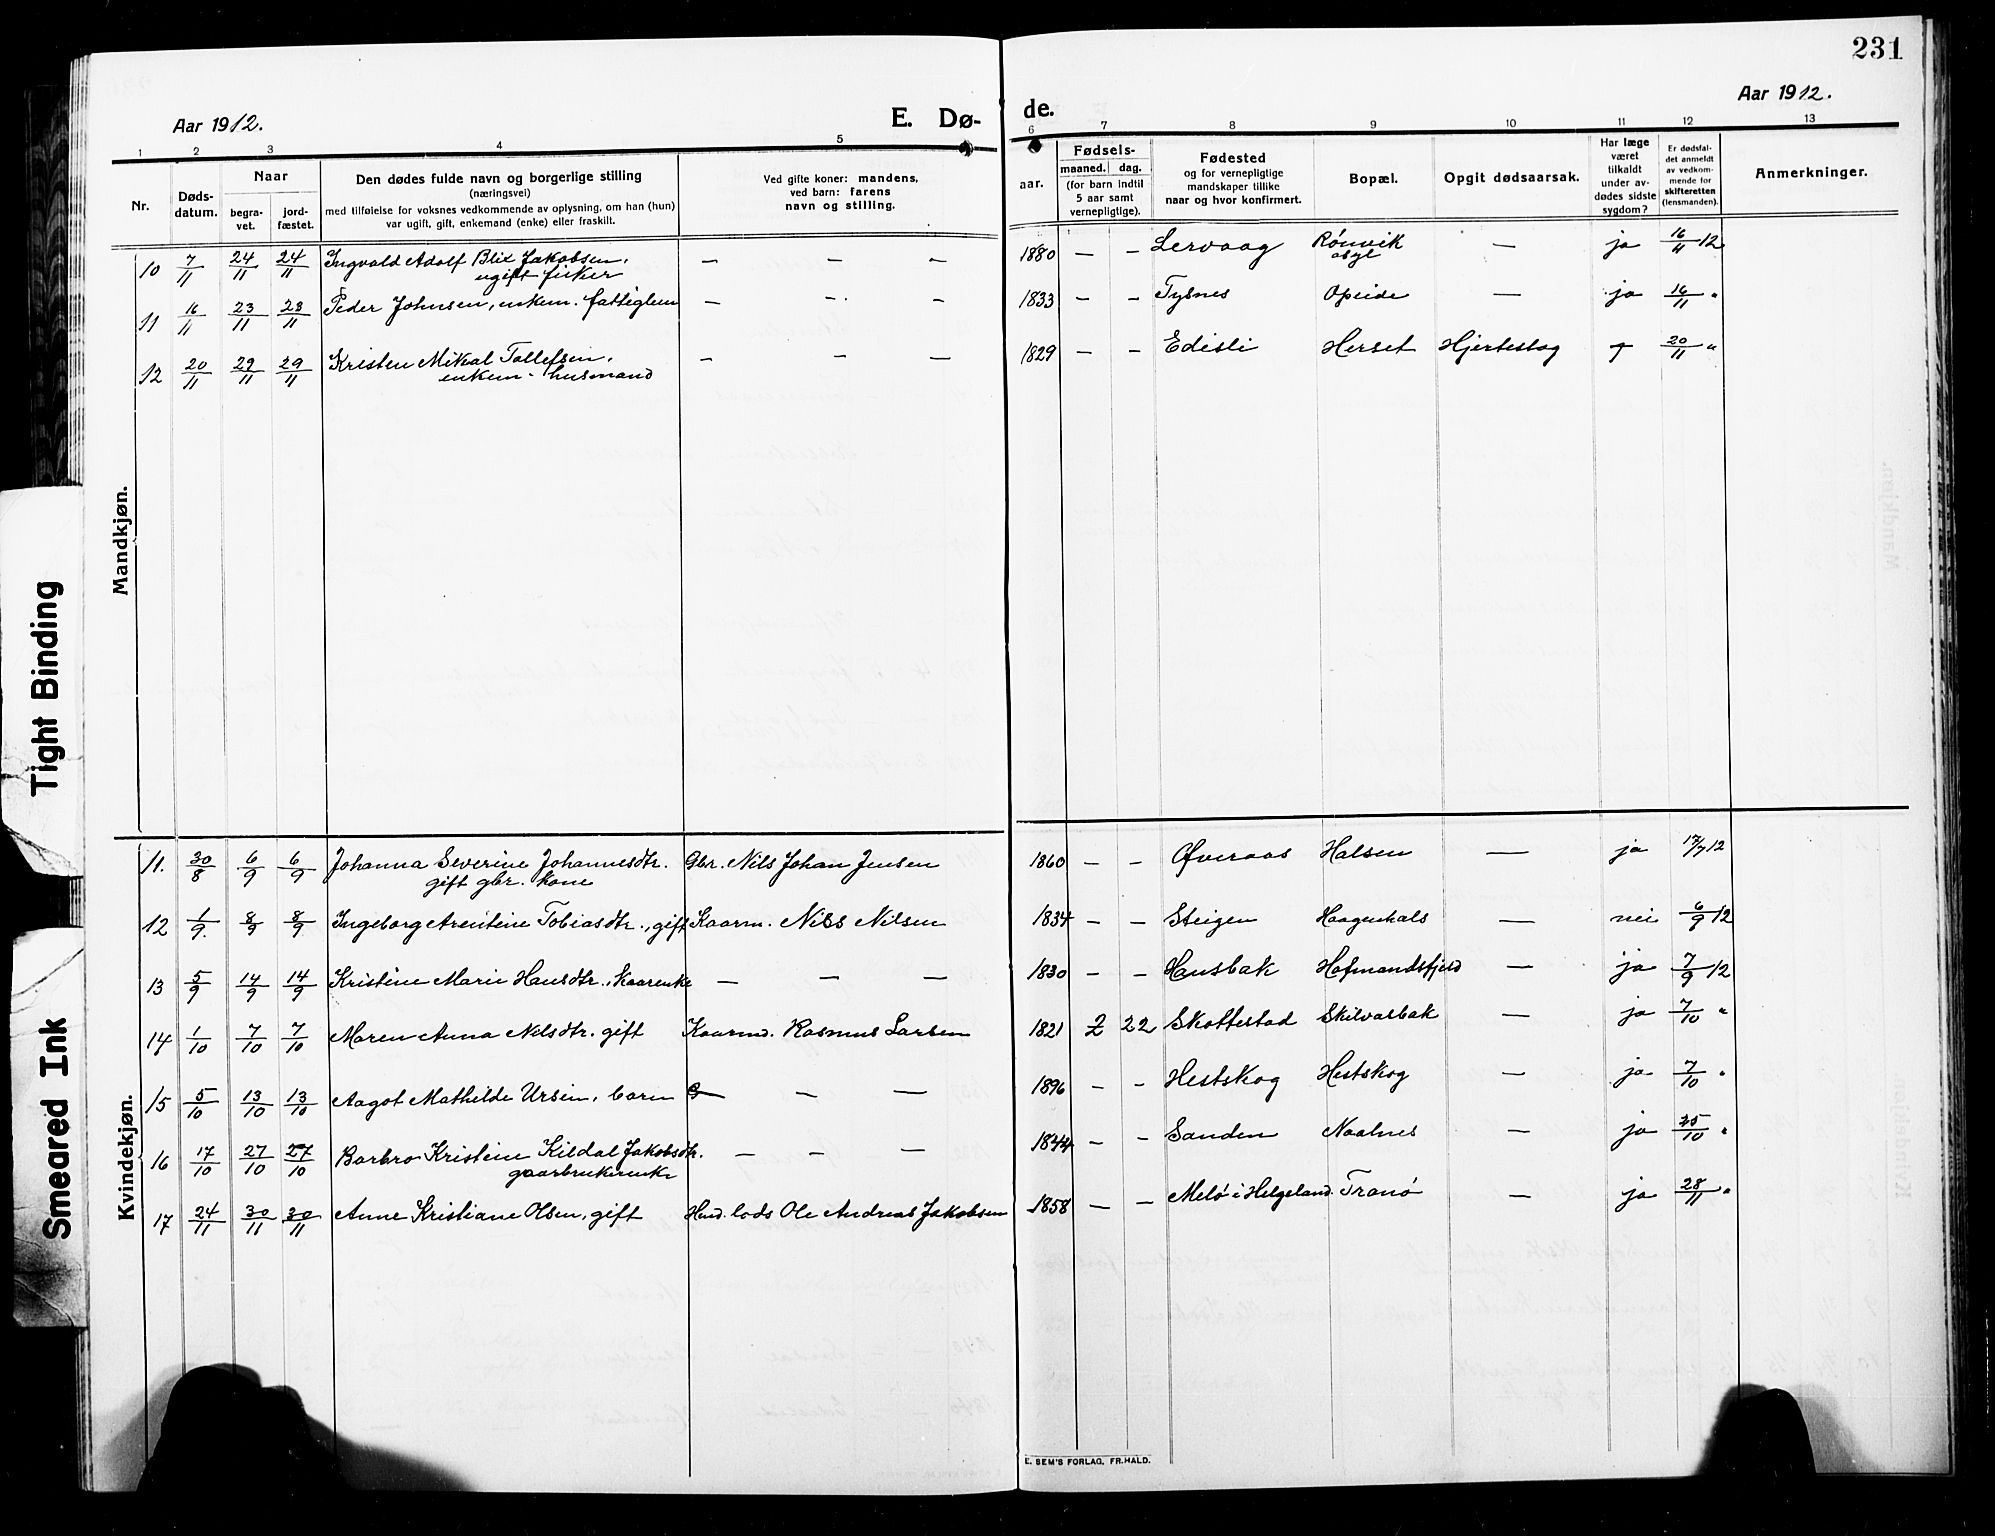 231
Aar 1912.
E. Dø-
de.
Aar 1912.
1 2 3 4 5 6 7 8 9 10 11 12 13
Nr.
Døds-
datum.
Naar
begra-
vet.
jord-
fæstet.
Den dødes fulde navn og borgerlige stilling
(næringsvei)
med tilføielse for voksnes vedkommende av oplysning, om han (hun)
var ugift, gift, enkemand (enke) eller fraskilt.
Ved gifte koner: mandens,
ved barn: farens
navn og stilling.
aar.
Fødsels-
maaned. dag.
(for barn indtil
5 aar samt
vernepligtige).
Fødested
og for vernepligtige
mandskaper tillike
naar og hvor konfirmert.
Bopæl.
Opgit dødsaarsak.
Har læge
været
tilkaldt
under av-
dødes sidste
sygdom?
Er dødsfal-
det anmeldt
av vedkom-
mende for
skifteretten
(lensmanden).
Anmerkninger.
Mandkjøn.
10 7/11 24/11 24/11 Ingvald Adolf Blix Jakobsen, — — — 1880 — — Lervaag Rönvik — ja 16/11 12
ugift fisker asyl
11 16/11 23/11 23/11 Peder Johnsen, enkem. fattiglem — — — 1833 — — Tysnes Opeide — ja 16/11 "
12 20/11 29/11 29/11 Kristen Mikal Tollefsen, — — — 1829 — — Edisli Herset Hjerteslag 20/11 "
enkem. husmand
Kvindekjøn.
11. 30/8 6/9 6/9 Johanna Severine Johannesdtr. Gbr. Nils Johan Jensen 1860 — — Øveraas Halsen — ja 17/7 12
gift gbr. kone
12 1/9. 8/9 8/9 Ingeborg Arentine Tobiasdtr., gift Kaarm. Nils Nilsen 1834 — — Steigen Haagenhals — nei 6/9 12
13 5/9 14/9 14/9 Kristine Marie Hansdtr., kaarenke — — — 1830 — — Hansbak Hofmandsfjeld — ja 7/9 12
14 1/10 7/10 7/10 Maren Anna Nilsdtr. gift Kaarmd. Rasmus Larsen 1821 2 22 Skottestad Skilvasbak — ja 7/10 "
15 5/10 13/10 13/10 Aagot Mathilde Ursin, barn — — — 1896 — — Hestskog Hestskog — ja 7/10 "
16 17/10 27/10 27/10 Barbro Kristine Kildal Jakobsdtr. — — — 1844 — — Sanden Naalnes — ja 25/10 "
gaarbrukerenke
17 24/11 30/11 30/11 Anne Kristiane Olsen, gift Hmd. lods Ole Andreas Jakobsen 1858 — — Melö i Helgeland. Tranö — ja 28/11 "
E. SEM'S FORLAG, FR.HALD.
Tight Binding
Smeared Ink